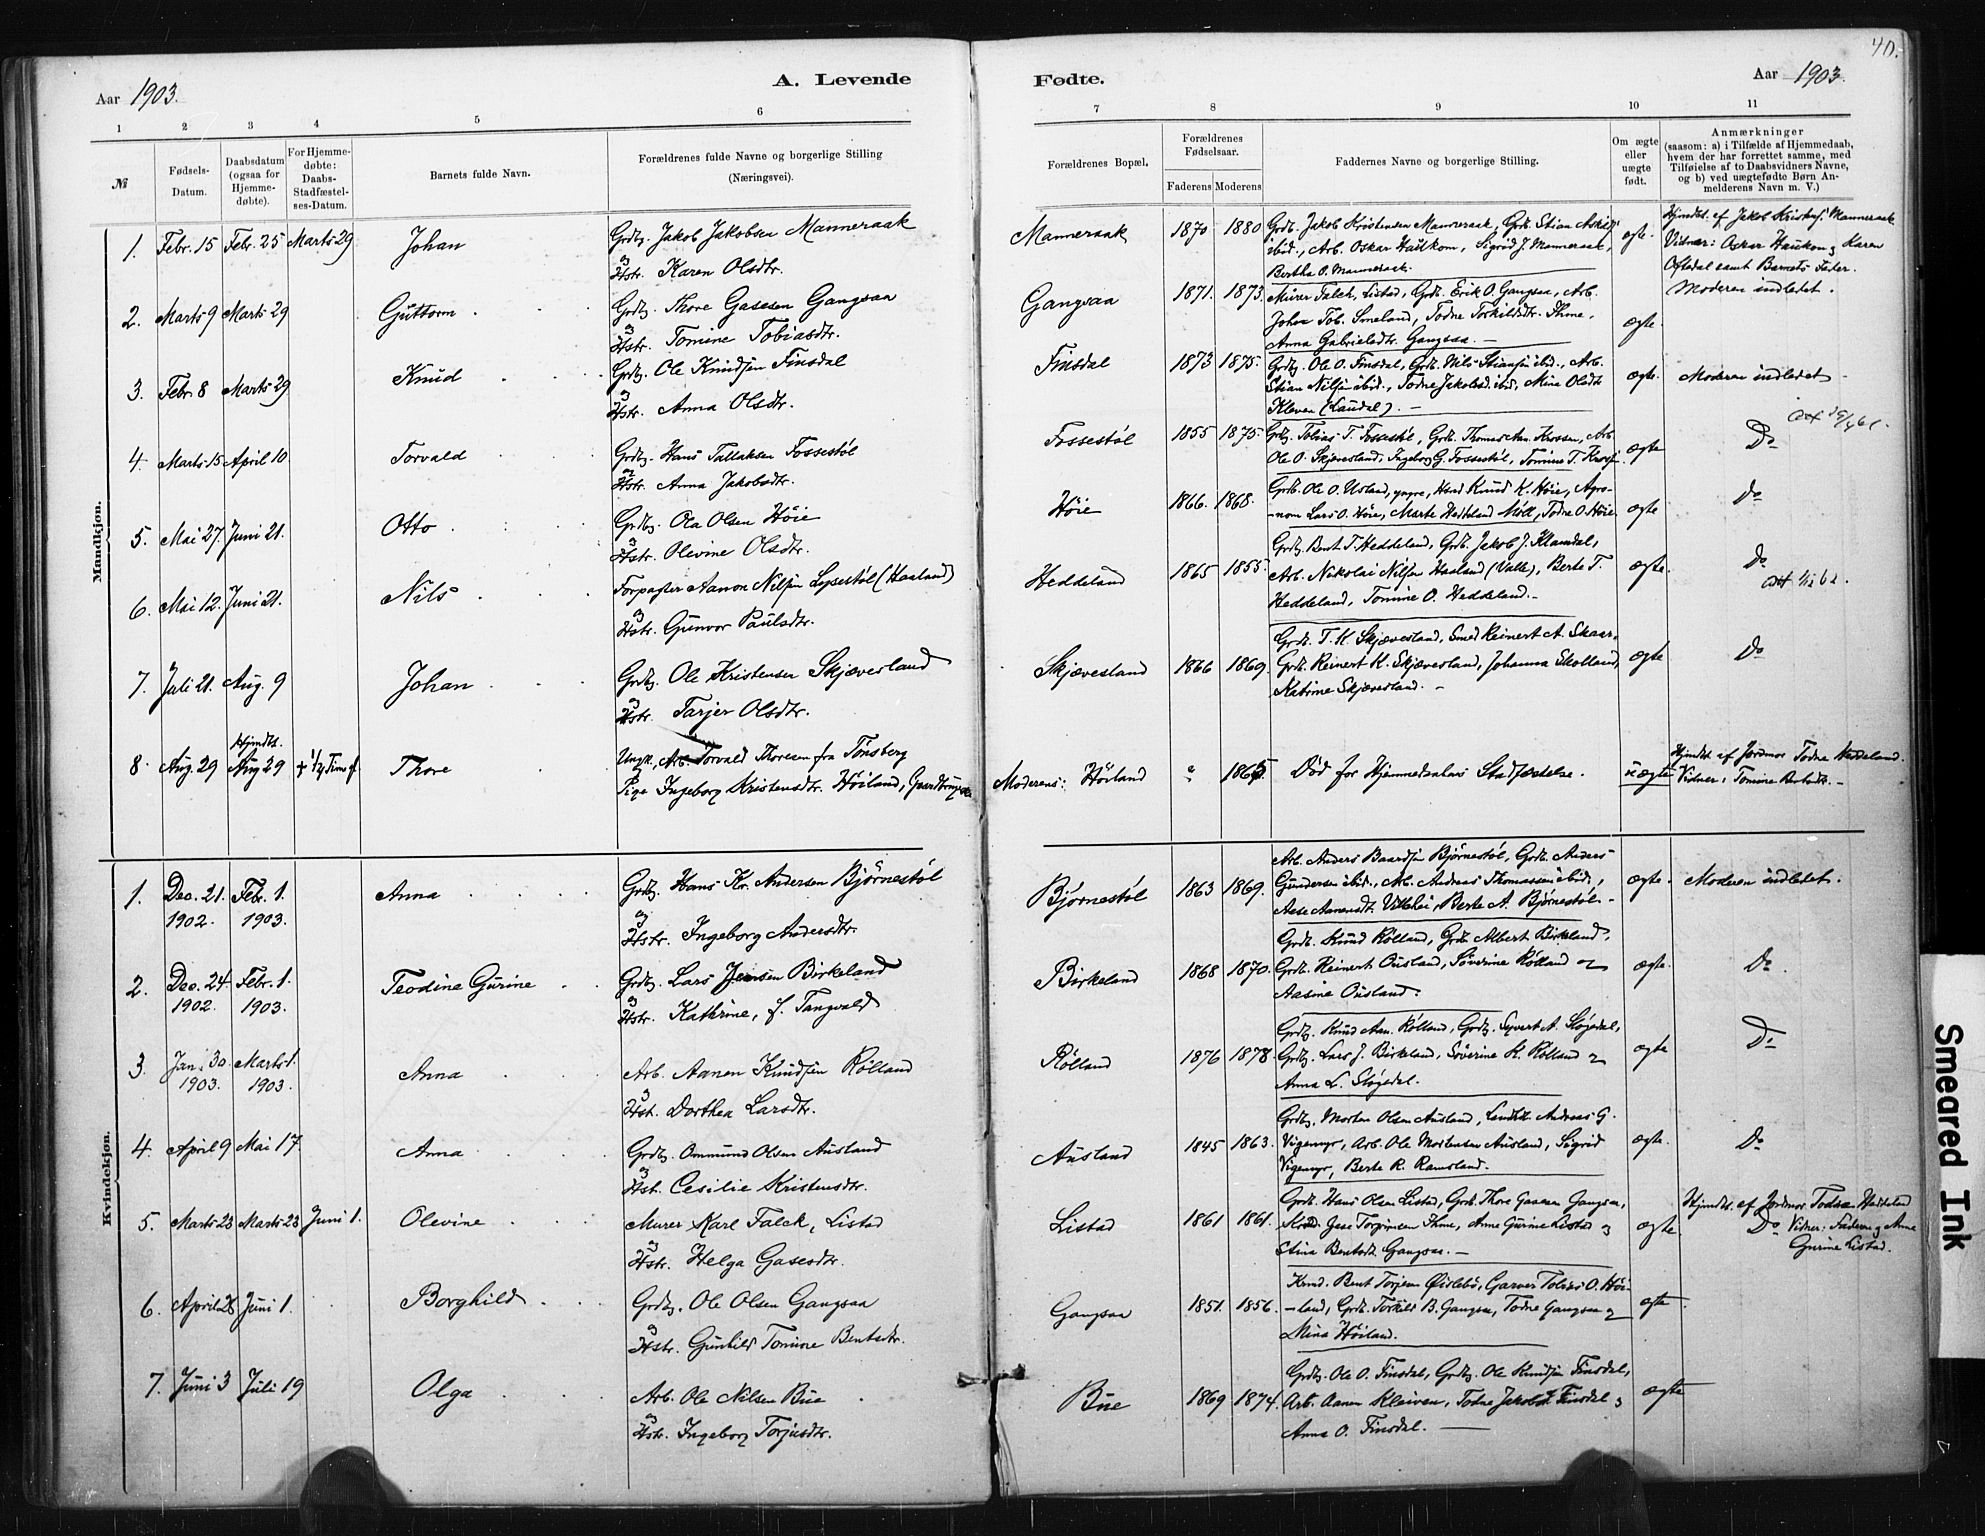 40.
Aar 1903.
A. Levende
Fødte.
Aar 1903.
1 2 3 4 5 6 7 8 9 10 11
№
Fødsels-
Datum.
Daabsdatum
(ogsaa for
Hjemme-
døbte).
For Hjemme-
døbte:
Daabs-
Stadfæstel-
ses-Datum.
Barnets fulde Navn.
Forældrenes fulde Navne og borgerlige Stilling
(Næringsvei).
Forældrenes Bopæl.
Forældrenes
Fødselsaar.
Faderens Moderens
Faddernes Navne og borgerlige Stilling.
Om ægte
eller
uægte
født.
Anmærkninger
(saasom: a) i Tilfælde af Hjemmedaab,
hvem der har forrettet samme, med
Tilføielse af to Daabsvidners Navne,
og b) ved uægtefødte Børn An-
melderens Navn m. V.)
Mandkjøn.
1. Febr. 15 Febr. 25 Marts 29 Johan
Grdbr. Jakob Jakobsen Manneraak
og Hstr. Karen Olsdtr.
Manneraak 1870 1880
Grdb. Jakob Kristensen Manneraak, Grb. Stian
ibid., Arb. Oskar Haükom, Sigrid J. Manneraak,
Bertha O. Manneraak.
ægte.
Hjmdbt. af Jakob Manneraak
Vidner: Oskar Haukom og Karen
Oftedal samt Barnets Fader.
Moderen indledet.
2. Marts 9 Marts 29 Güttorm
Grdbr. Thore Gasesen Gangsaa
og Hstr. Tomine Tobiasdtr.
Gangsaa 1871. 1873.
Murer Falck, Listad, Grdb. Erik O. Gangsaa, Arb.
Johan Tob. Smeland, Todne Torkildsdtr. Thme,
Anna Gabrielsdtr. Gangsaa.
ægte
3. Febr. 8 Marts 29 Knüd
Grdbr. Ole Knüdsen Finsdal
og Hstr. Anna Olsdtr.
Finsdal 1873 1875.
Grdbr. Ole O. Finsdal, Grdb. Nils Stiansen ibid., Arb.
Stian Nilsen ibid., Todne Jakobsd. ibid., Mina Olsdtr
Kleven (Laudal).
ægte.
Moderen indledet
4. Marts 15 April 10 Torvald
Grdbr. Hans Tallaksen Fossestøl
og Hstr. Anna Jakobsdtr.
Fossestøl 1855 1875.
Grdbr. Tobias T. Fossestøl, Grdb. Thomas Aan. Krossen, Arb.
Ole O. Skjævesland, Ingeborg G. Fossestøl, Tomine T.
ægte
Do
5. Mai 27. Juni 21. Otto
Grdbr. Ola Olsen Höie
og Hstr. Olevine Olsdtr.
Höie 1866. 1868.
Grdb. Ole O. Usland, yngre, Knud K. Höie, Agro-
nom Lars O. Höie, Marte Heddeland Möll, Todne O. Höie
ægte
Do
6. Mai 12. Juni 21. Nils
Forpagter Aanon Nilsen Lysestøl (Haaland)
og Hstr. Gunvor Paulsdtr.
Heddeland 1865 1855.
Grdbr. Bent T. Heddeland, Grdb. Jakob J. Klamdal,
Arb. Nikolai Nilsen Haaland (Valle), Berte T.
Heddeland, Tomine O. Heddeland.
ægte.
Do
7. Juli 21. Aug. 9 Johan
Grdbr. Ole Kristensen Skjævesland
og Hstr. Tarjer Olsdtr.
Skjævesland 1866 1869.
Grdb. T. K. Skjævesland, Smed Reinert A. Skaar,
Grdb. Reinert K. Skjævesland, Johanna Skolland,
Katrine Skjævesland.
ægte
Do
8. Aug. 29 Hjmdbt. Aug 29 Thore
Ungk., Arb. Torvald Thorsen fra Tønsberg
Pige Ingeborg Kristensdtr. Höiland,
Moderens: Höiland 1865
Död før Hjemmedaabens Stadfæstelse.
uægte
Hjmdbt. af Jordmor Todne Heddeland.
Vidner: Tomine
Kvindekjøn.
1. Dec. 21. 1902. Febr. 1. 1903. Anna
Grdbr. Hans Kr. Andersen Bjørnestøl
og Hstr. Ingeborg Andersdtr.
Bjørnestøl 1863 1869.
Arb. Anders Baardsen Bjørnestøl, Grdb. Anders
Gundersen ibid., Arb. Andreas Thomassen ibid.,
Aase Aanensdt. Berte A. Bjørnestøl.
ægte.
Moderen indledet.
2. Dec. 24 1902. Febr. 1. 1903. Teodine Gürine
Grdbr. Lars Jensen Birkeland
og Hstr. Kathrine, f. Tangvald
Birkeland 1868 1870.
Grdb. Knud Rölland, Grdb. Albert Birkeland,
Grdb. Reinert Ousland, Söverine Rölland og
Aasine Ousland.
ægte.
Do.
3. Jan. 30. 1903. Marts 1. 1903. Anna
Arb. Aanen Knudsen Rölland
og Hst. Dorthea Larsdtr.
Rölland 1876 1878.
Grdbr. Knud Aan. Rölland, Grdbr. Syvert A. Sløgedal,
Grdbr. Lars J. Birkeland, Söverine K. Rölland og
Anna L. Sløgedal.
ægte
Do
4. April 9 Mai 17. Anna
Grdbr. Ommund Olsen Ausland
og Hst. Cesilie Kristensdtr.
Ausland 1845 1863.
Grdbr. Morten Olsen Ausland, Andreas G.
Vigemyr, Arb. Ole Mortensen Ausland, Sigrid
Vigemyr, Berte R. Ramsland.
ægte.
Do
5. Marts 23 Marts 23 Juni 1. Olevine
Murer Karl Falck, Listad
og Hstr. Helga Gasesdtr.
Listad 1861 1861.
Grdb. Hans Olsen Listad, Grdb. Thore Gasesen Gangsaa,
Torgrimsen Thme, Anne Gurine Listad og
Stina Bentsdt. Gangsaa.
ægte
Hjmdbt. af Jordmor Todne Heddeland
Do Vidner: Faderen og Anne
Gurine Listad.
6. April 28 Juni 1. Borghild
Grdbr. Ole Olsen Gangsaa
og Hstr. Gunhild Tomine Bentsdtr.
Gangsaa 1851. 1856.
Bent Torjesen Øislebö, Garver Tobias O. Höi-
land, Grdb. Torkild B. Gangsaa, Todne Gangsaa og
Mina Höiland.
ægte
7. Juni 3 Juli 19 Olga
Arb. Ole Nilsen Bue
og Hstr. Ingeborg Torjusdtr.
Bue 1869 1874.
Grdbr. Ole O. Finsdal, Grdbr. Ole Knudsen Finsdal,
Arb. Aanen Kleiven, Todne Jakobsd. Finsdal og
Anna O. Finsdal.
ægte
Smeared Ink